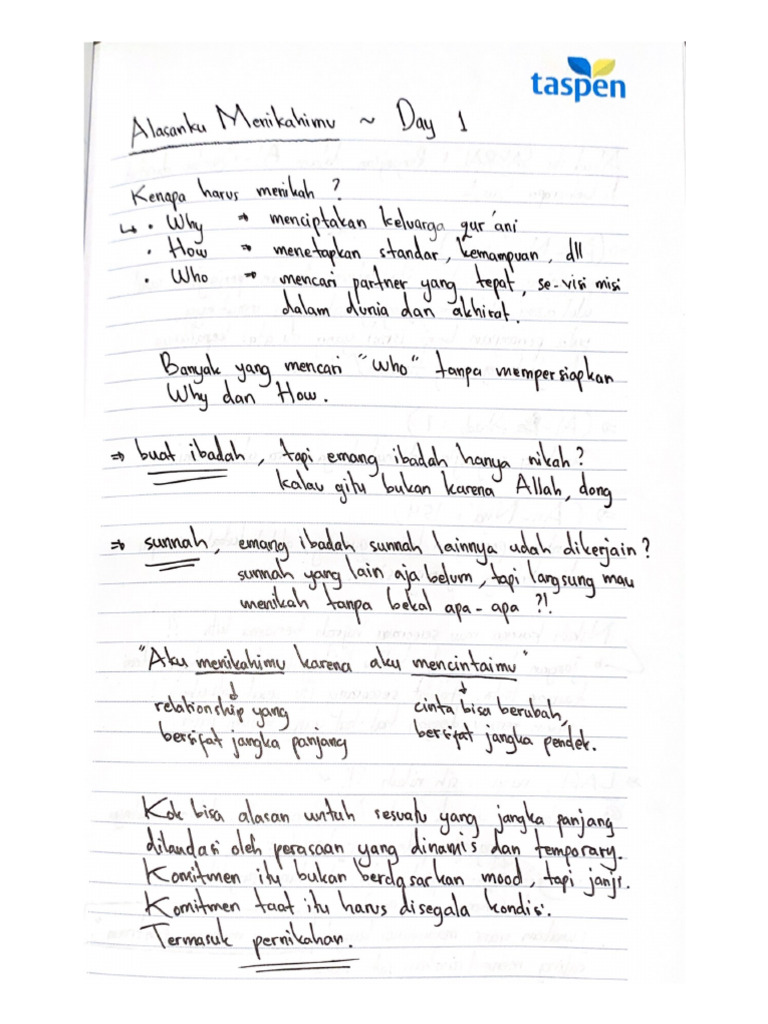 taspen
Alasanku Menikahimu ~ Day 1
Kenapa harus menikah?
↳ • Why ⇒ menciptakan keluarga qur'ani
• How ⇒ menetapkan standar, kemampuan, dll
• Who ⇒ mencari partner yang tepat, se-visi misi
dalam dunia dan akhirat.
Banyak yang mencari "Who" tanpa mempersiapkan
Why dan How.
⇒ buat ibadah, tapi emang ibadah hanya nikah?
kalau gitu bukan karena Allah, dong
⇒ sunnah, emang ibadah sunnah lainnya udah dikerjain?
sunnah yang lain aja belum, tapi langsung mau
menikah tanpa bekal apa-apa ?!
"Aku menikahimu karena aku mencintaimu"
↓ ↓
relationship yang cinta bisa berubah,
bersifat jangka panjang bersifat jangka pendek.
Kok bisa alasan untuk sesuatu yang jangka panjang
dilandasi oleh perasaan yang dinamis dan temporary.
Komitmen itu bukan berdasarkan mood, tapi janji.
Komitmen taat itu harus disegala kondisi.
Termasuk pernikahan.